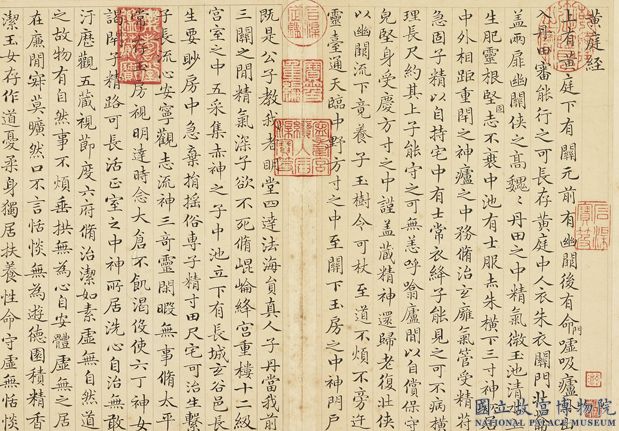 黄庭經
上有黄庭下有關元前有幽闕後有命門噓吸廬
入丹田審能行之可長存黄庭中人衣朱衣關門壯
盖兩扉幽闕俠之髙魏魏丹田之中精氣微玉池清水
生肥靈根堅固志不衰中池有士服赤朱横下三寸神
中外相距重閉之神廬之中務脩治玄廱氣管受精符
急固子精以自持宅中有士常衣絳子能見之可不病横
理長尺約其上子能守之可無恙呼翕廬間以自償保守
皃堅身受慶方寸之中謹盖藏精神還歸老復壮俠
以幽闕流下竟養子玉樹令可杖至道不煩不旁迕
靈臺通天臨中野方寸之中至關下玉房之中神門戸
既是公子教我者明堂四達法海負真人子丹當我前
三關之間精氣深子欲不死脩崐崘絳宫重樓十二級
宫室之中五采集赤神之子中池立下有長城玄谷邑長
生要眇房中急棄捐揺俗專子精寸田尺宅可治生繫
子長流心安寧觀志流神三奇靈閒暇無事脩太平
常存玉房視明達時念大倉不飢渴伇使六丁神女
謁閉子精路可長活正室之中神所居洗心自治無敢
汙歴觀五藏視節度六府脩治潔如素虚無自然道
之故物有自然事不煩垂拱無為心自安體虚無之居
在廉閒寂莫曠然口不言恬惔無為遊德園積精香
潔玉女存作道憂柔身獨居扶養性命守虚無恬惔
國立故宫博物院
NATIONAL PALACE MUSEUM